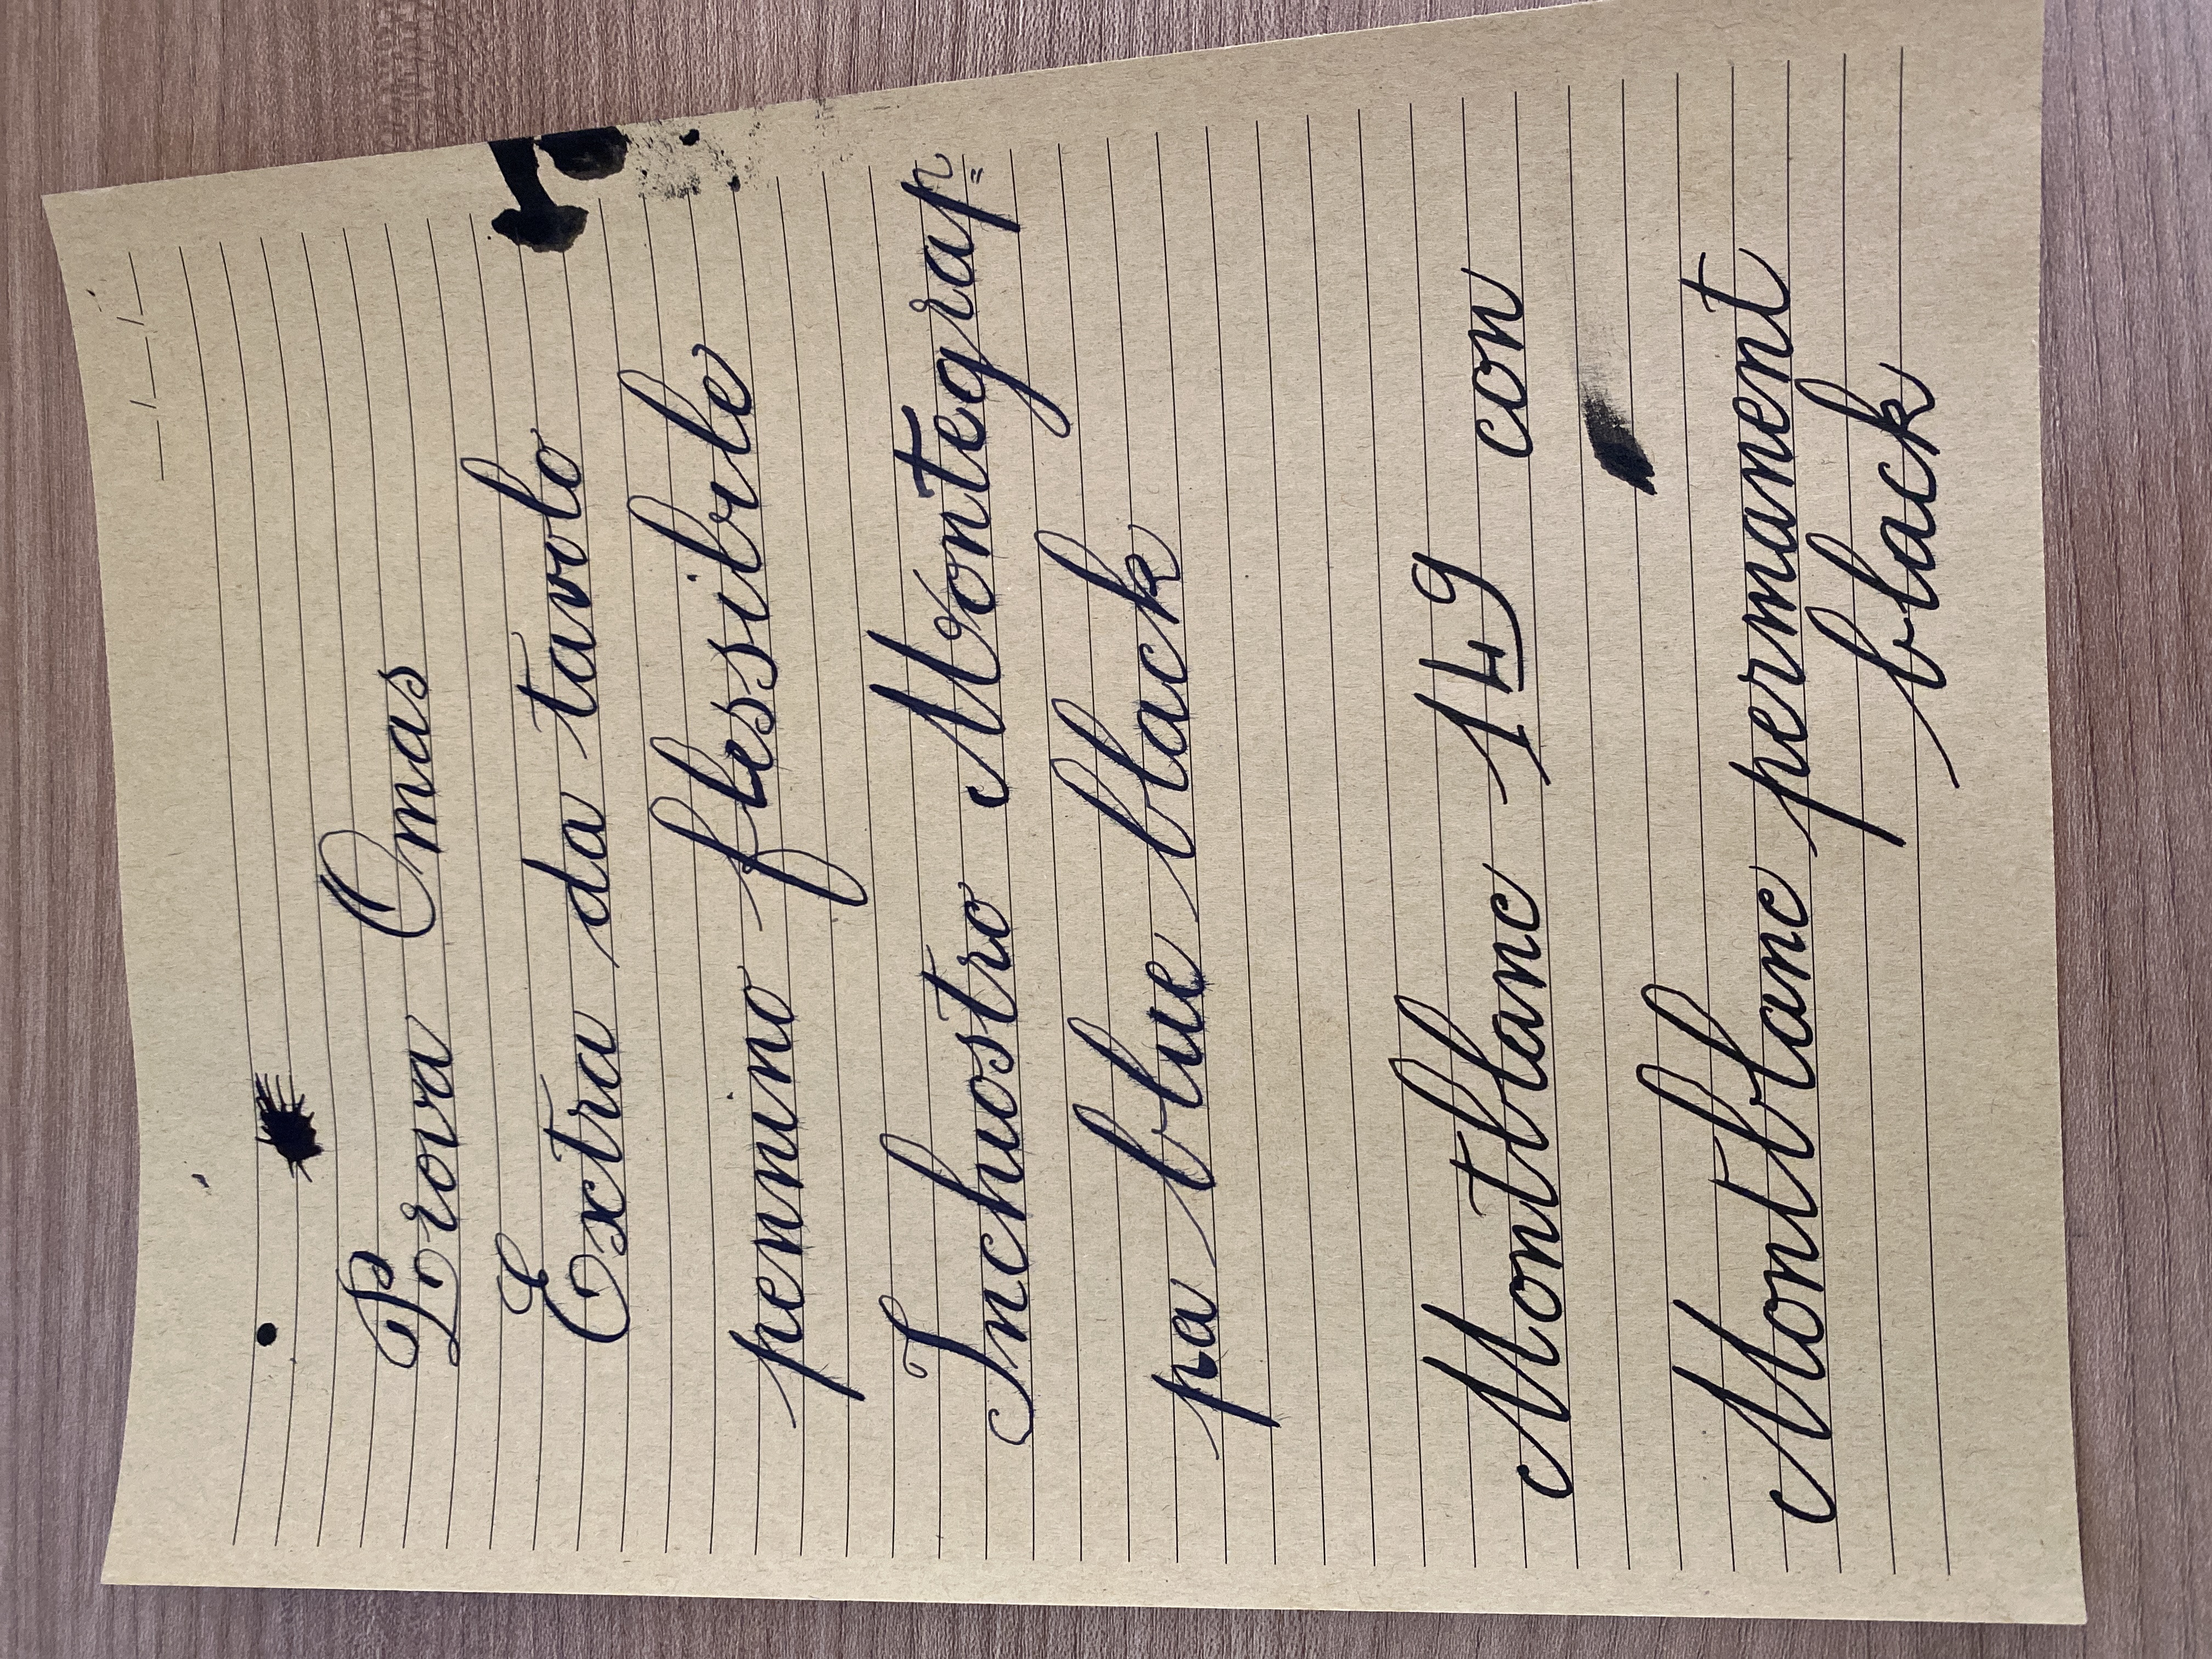 Prova Omas
Extra da tavolo
pennino flessibile
Inchiostro Montegrap=
pa blue black
Montblanc 149 con
Montblanc permanent
black